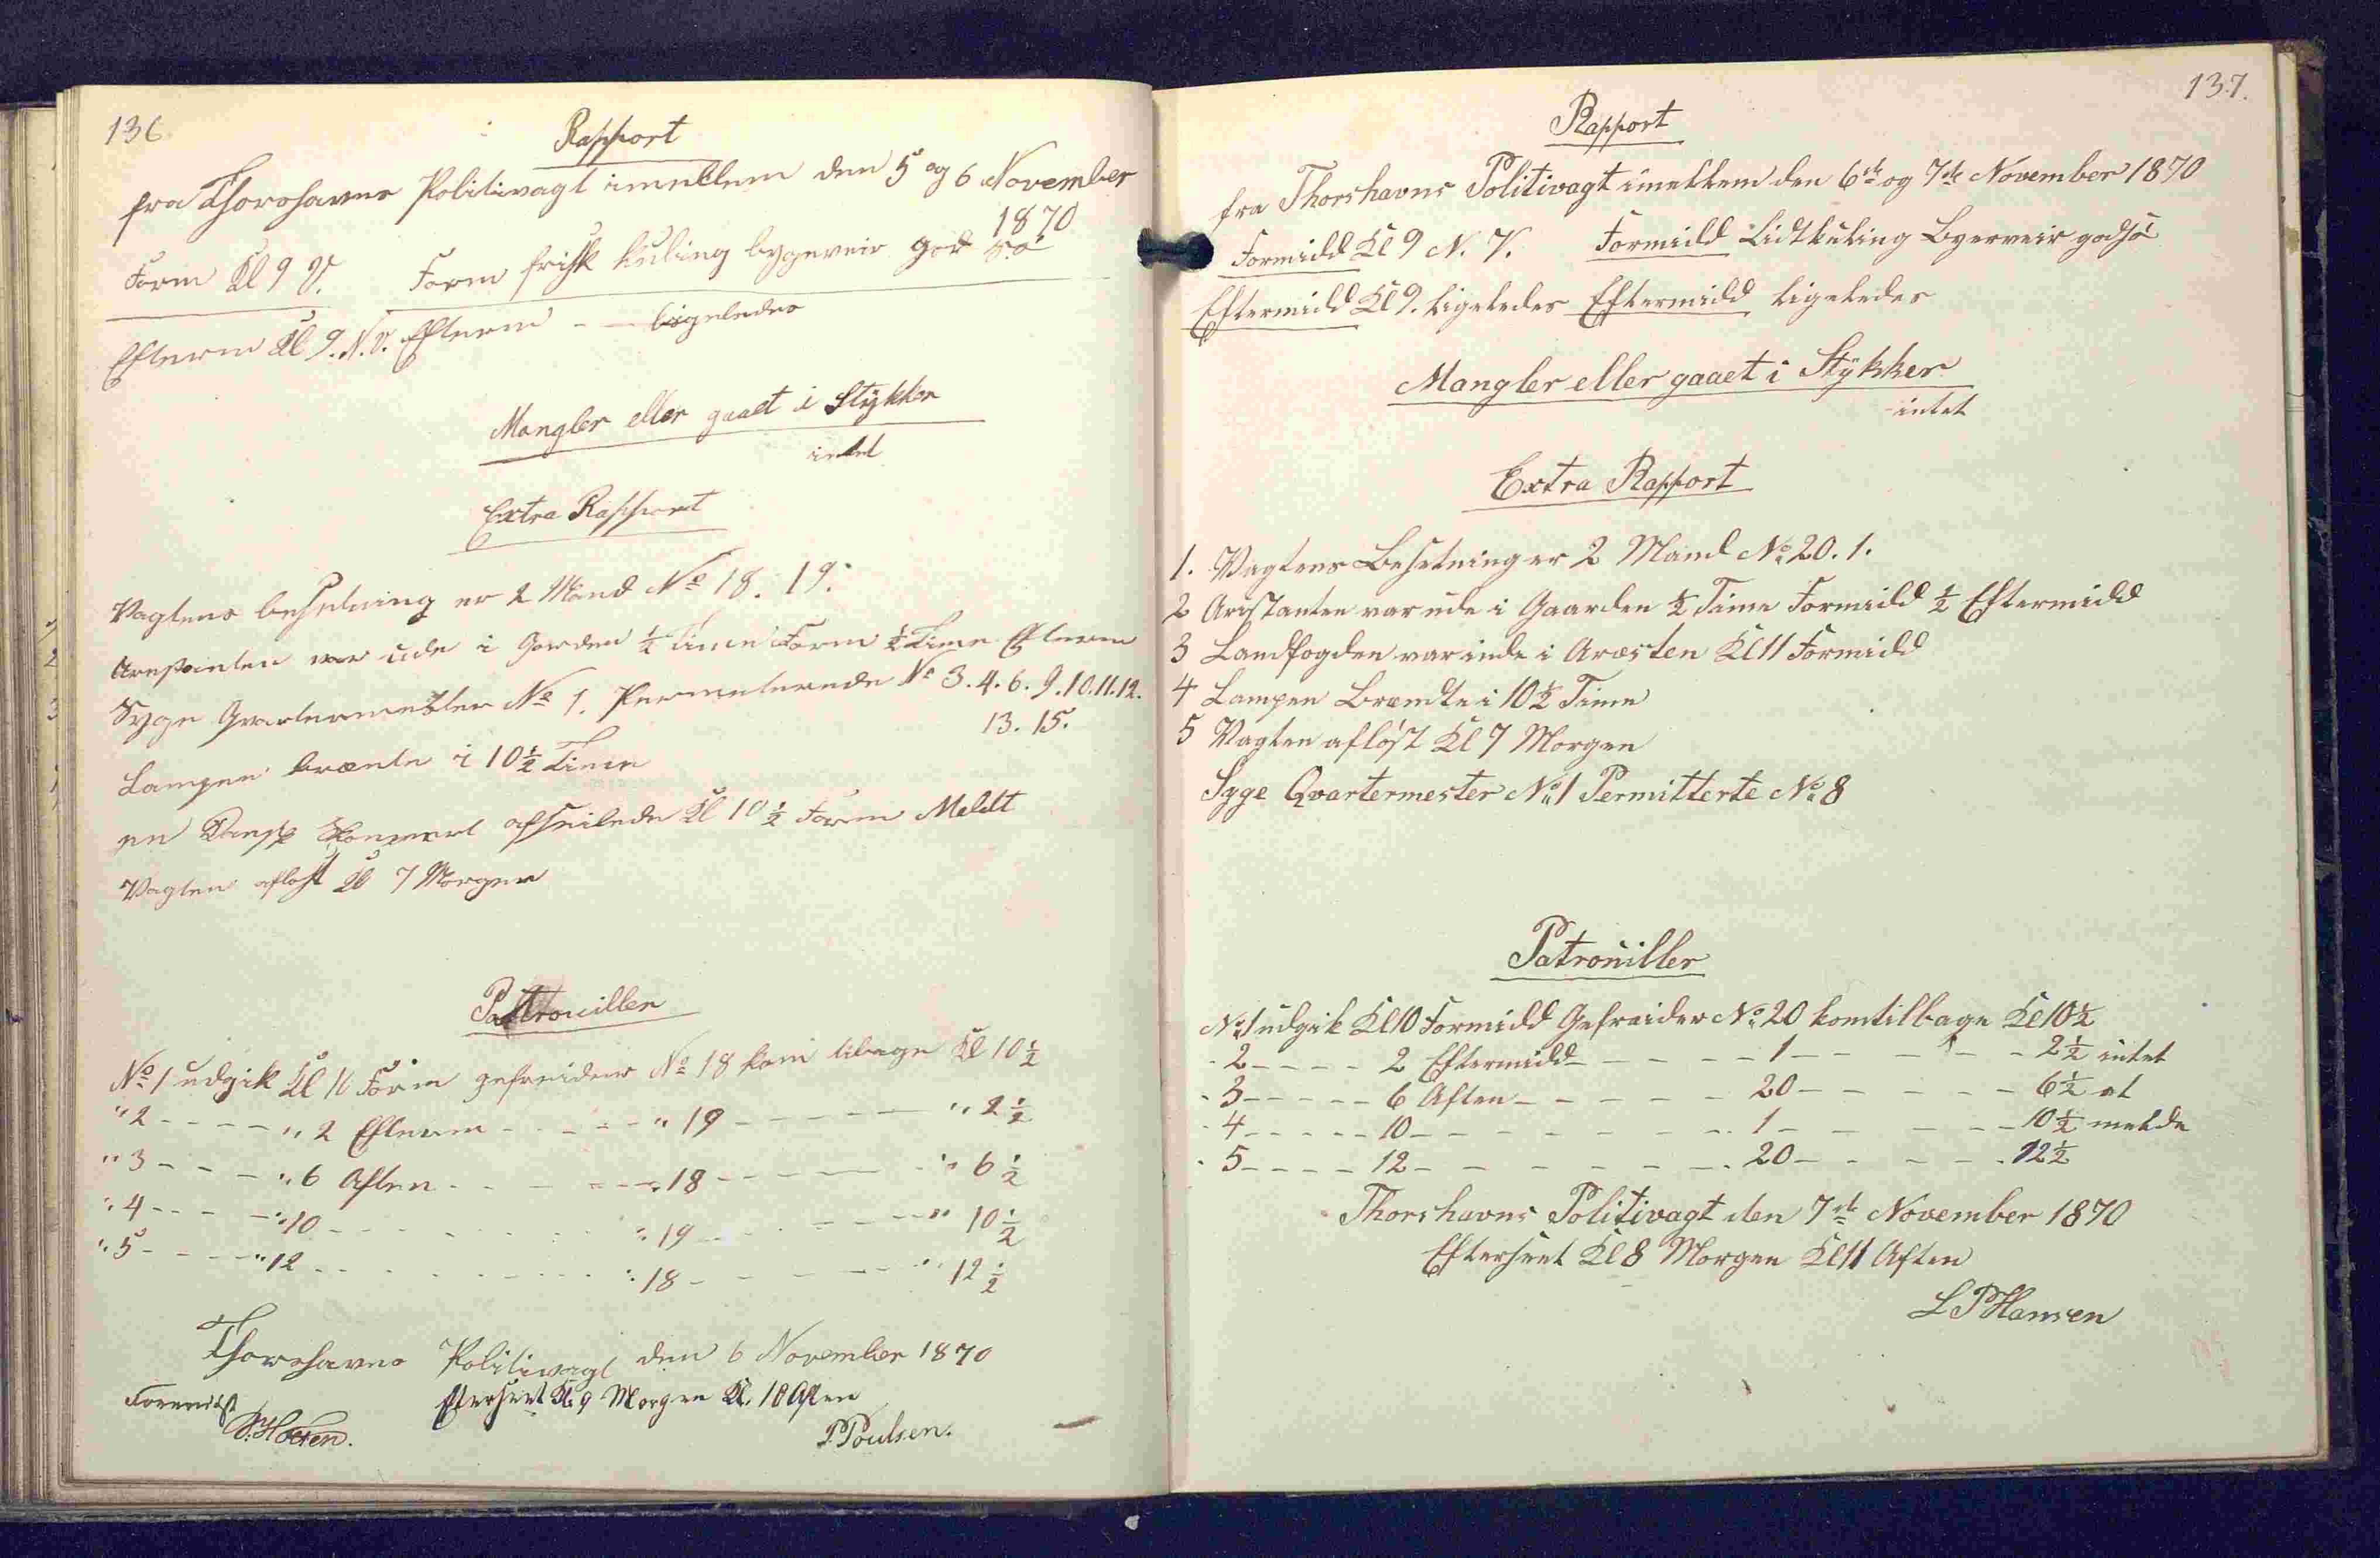 136
Rapport
fra Thorshavns Politivagt imellem den 5 og 6 November
1870
Form Kl 9 V. Form frisk kuling bygeveir god Sö
Efterm Kl 9. N.V. Efterm - - ligeledes
Mangler eller gaaet i Stykker
intet
Extra Rapport
Vagtens besetning er 2 Mand No 18. 19.
Arestanten var ude i Gorden ½ Time Form ½ Time Efterm
Syge Qvartermester No 1. Permeterede No 3. 4. 6. 9. 10. 11. 12.
13. 15.
Lampen brænte i 10½ Time
en Dansk afseilede Kl 10½ Form Meldt
Vagten aflöst Kl 7 Morgen
Patrouiller
No 1 udgik Kl 10 Form gefreider No 18 kom tibage Kl 10½
" 2 - - - - " 2 Efterm - - - - " 19 - - - - " 2½
" 3 - - - - " 6 Aften - - - - " 18 - - - - " 6½
" 4 - - - - " 10 - - - - " 19 - - - - " 10½
" 5 - - - - " 12 - - - - " 18 - - - - " 12½
Thorshavns Politivagt den 6 November 1870
Eterseet Kl. 9 Morgen Kl. 10 Aften
Foreviist
P. Poulsen.
137.
Rapport
fra Thorshavns Politivagt imellem den 6te og 7de November 1870
Formidd Kl 9 N. V. Formidd Lidtkuling Byerveir godsö
Eftermidd Kl 9. ligeledes Eftermidd ligeledes
Mangler eller gaaet i Stykker
intet
Extra Rapport
1. Vagtens Besetning er 2 Mand No 20. 1.
2 Arestanten var ude i Gaarden ½ Time Formidd ½ Eftermidd
3 Landfogden var inde i Aræsten Kl 11 Formidd
4 Lampen Brændte i 10½ Time
5 Vagten aflöst Kl 7 Morgen
Syge Qvartermester No 1 Permitterte No 8
Patrouiller
No 1 udgik Kl 10 Formidd Gefreider No 20 komtilbage Kl 10½
- 2 - - - - 2 Eftermidd - - - - 1 - - - - 2½ intet
- 3 - - - - 6 Aften - - - - 20 - - - - 6½ at
- 4 - - - - 10 - - - - 1 - - - - 10½ melde
- 5 - - - - 12 - - - - 20 - - - - 12½
Thorshavns Politivagt den 7de November 1870
Efterseet Kl 8 Morgen Kl 11 Aften
L P Hansen